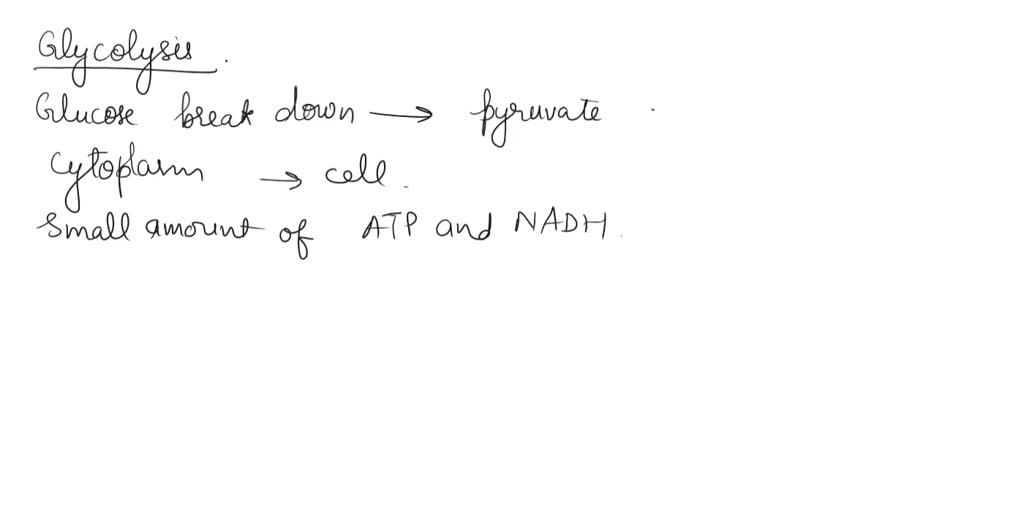 Glycolysis.
Glucose break down → pyruvate
Cytoplasm → cell.
Small amount of ATP and NADH.